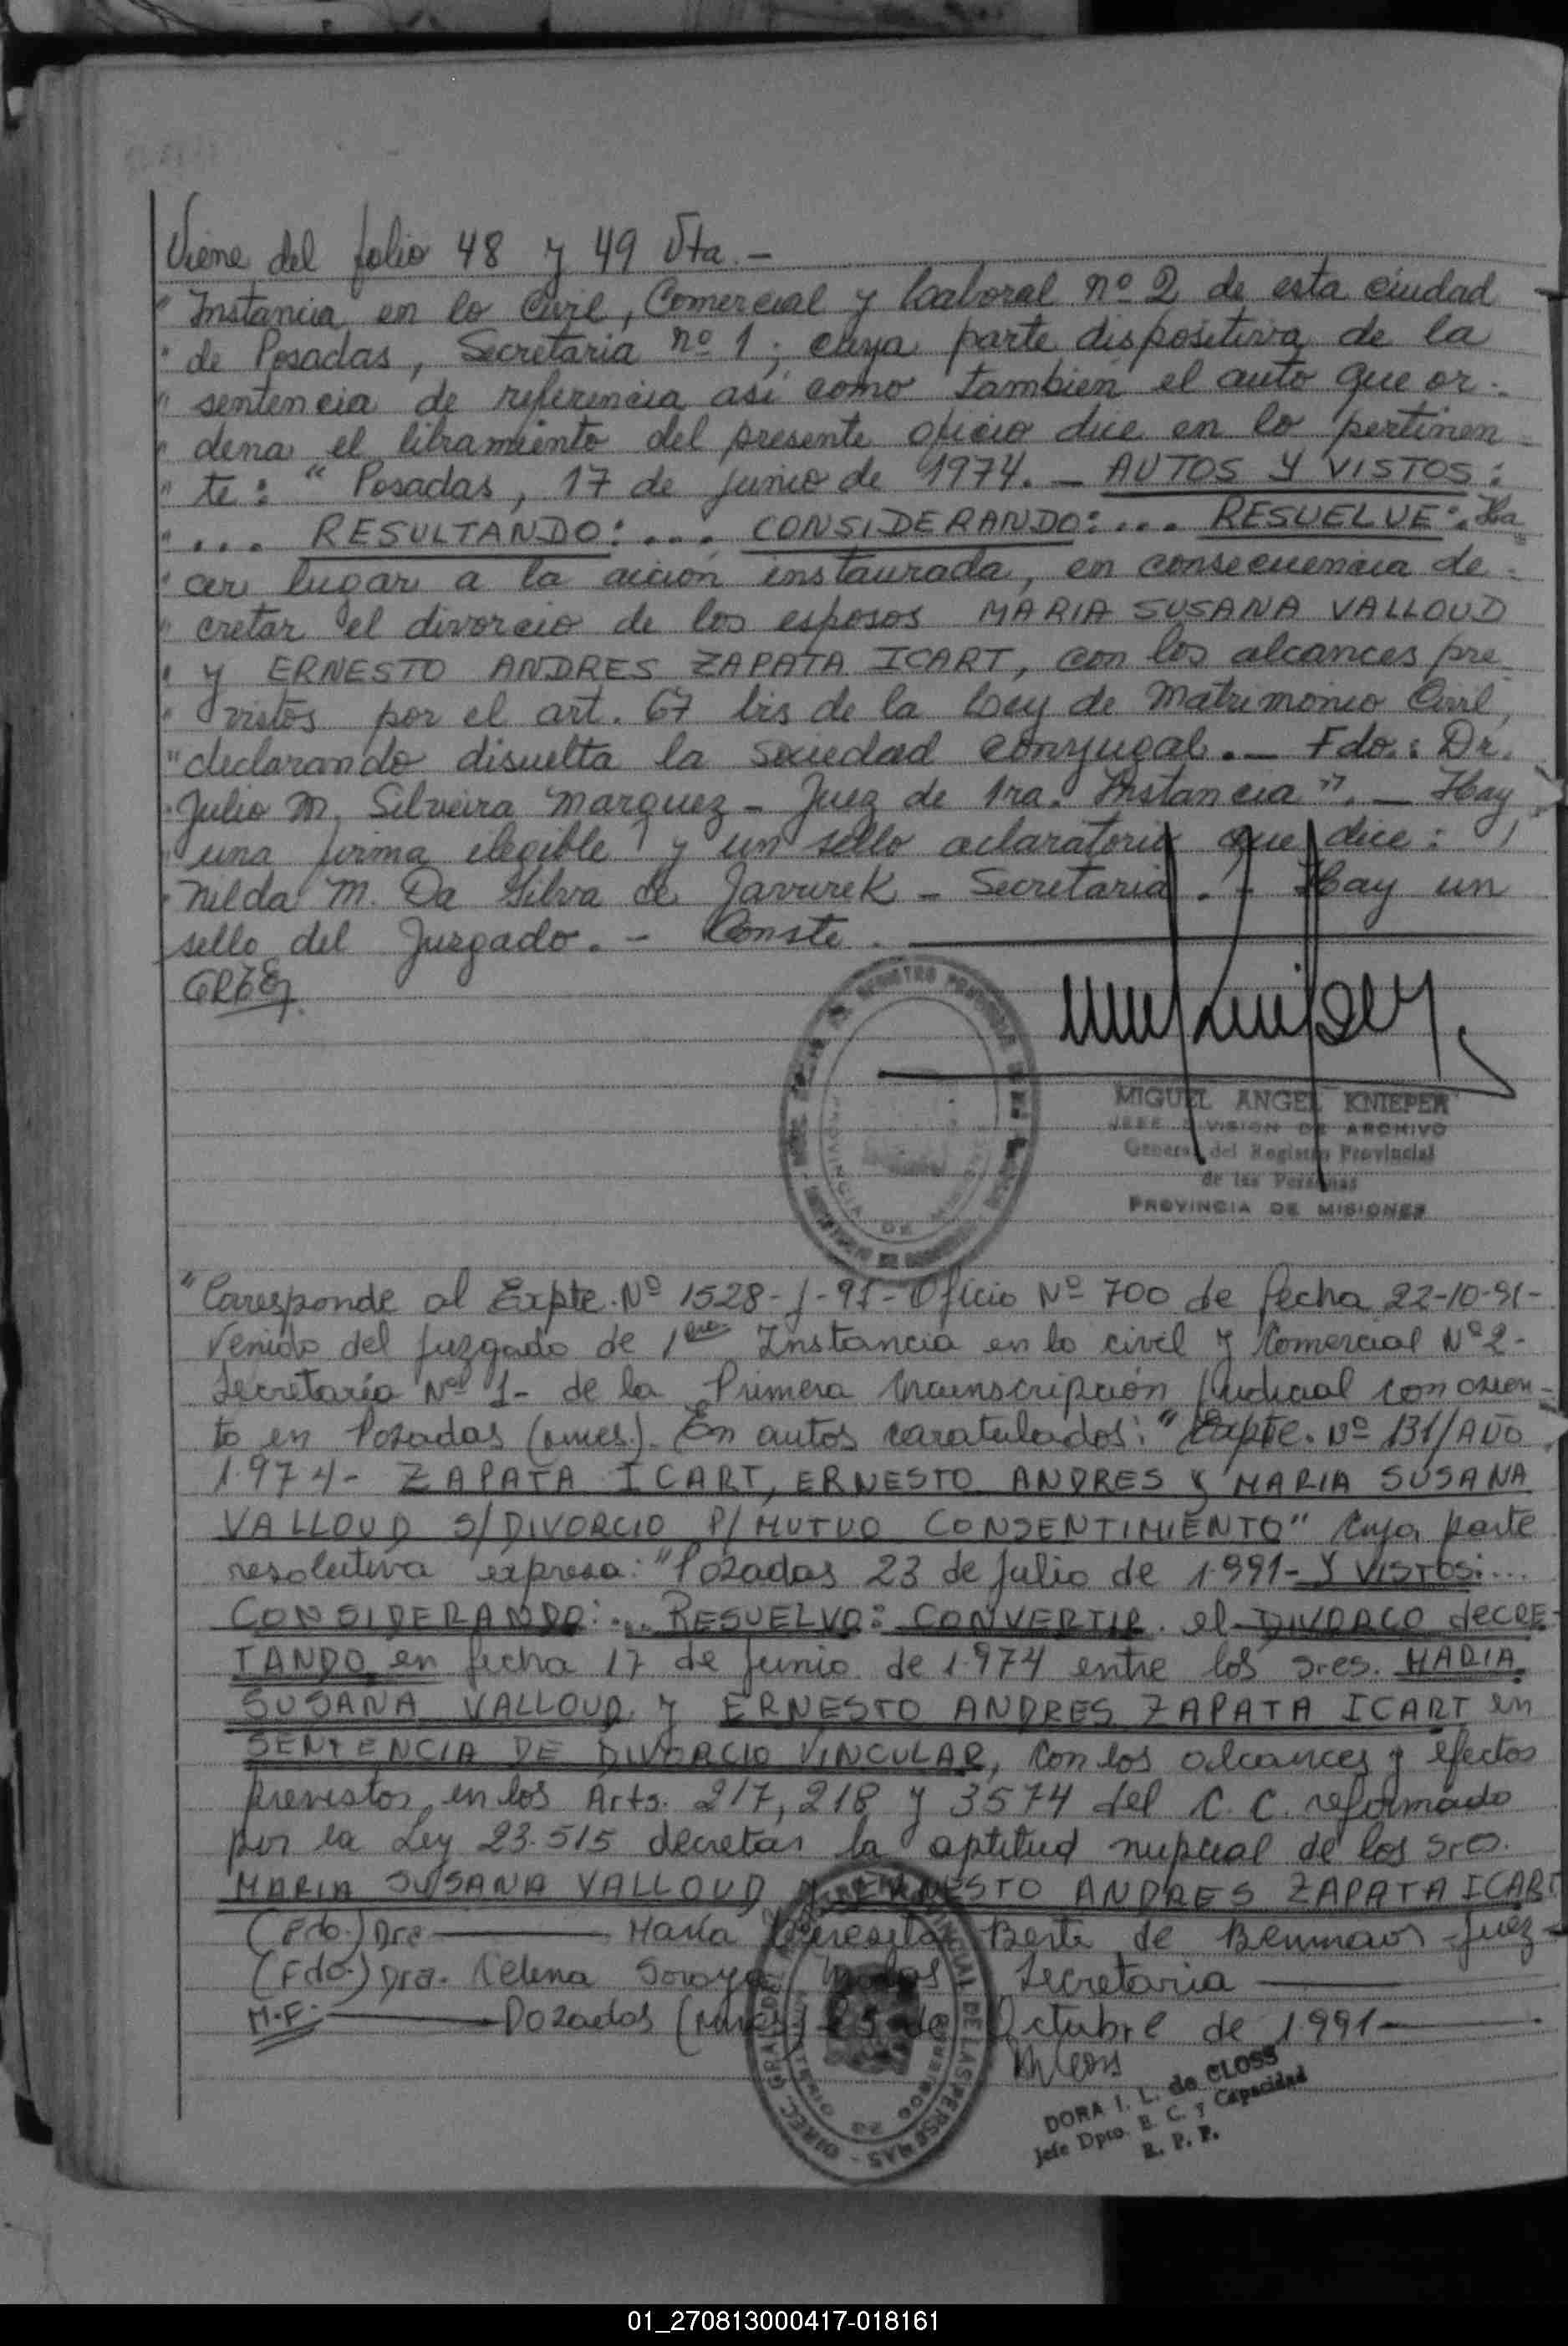 Viene del folio 48 y 49 Vta.-
" Instancia en lo Civil, Comercial y Laboral nº 2 de esta ciudad
" de Posadas, Secretaria nº 1; cuya parte dispositiva de la
" sentencia de referencia así como también el auto que or-
" dena el libramiento del presente oficio dice en lo pertinen-
" te: " Posadas, 17 de junio de 1974.- AUTOS Y VISTOS:
" ... RESULTANDO: .... CONSIDERANDO: ... RESUELVE: Ha
" cer lugar a la acción instaurada, en consecuencia de-
" cretar el divorcio de los esposos MARIA SUSANA VALLOUD
" y ERNESTO ANDRES ZAPATA ICART, con los alcances pre-
" vistos por el art. 67 bis de la Ley de Matrimonio Civil,
" declarando disuelta la sociedad conyugal.- Fdo.: Dr.
" Julio M. Silveira Marquez - Juez de 1ra. Instancia".- Hay
" una firma elegible y un sello aclaratorio que dice:
" Nilda M. Da Silva de Javurek - Secretaria.- Hay un
sello del Juzgado.- Conste.
MIGUEL ANGEL KNIEPER
JEFE DIVISION DE ARCHIVO
General del Registro Provincial
de las Personas
PROVINCIA DE MISIONES
"Coresponde al Expte. Nº 1528-J-91- Oficio Nº 700 de fecha 22-10-91-
Venido del Juzgado de 1era Instancia en lo civil y Comercial Nº 2-
Secretaría Nº 1- de la Primera Judicial con asien-
to en Posadas (Mnes.). En autos caratulados: "Expte. Nº 131/AÑO
1.974- ZAPATA ICART, ERNESTO ANDRES y MARIA SUSANA
VALLOUD S/DIVORCIO P/MUTUO CONSENTIMIENTO" Cuya parte
resolutiva expresa: "Posadas 23 de Julio de 1.991- Y VISTOS: ...
CONSIDERANDO: ... RESUELVO: CONVERTIR el DIVORCO decRE-
TANDO en fecha 17 de Junio de 1.974 entre los Sres. MARIA
SUSANA VALLOUD y ERNESTO ANDRES ZAPATA ICART en
SENTENCIA DE DIVORCIO VINCULAR, con los alcances y efectos
previstos en los Arts. 217, 218 y 3574 del C. C. reformado
por la Ley 23.515 decretar la aptitud nupcial de los Sres.
MARIA SUSANA VALLOUD y ERNESTO ANDRES ZAPATA ICART
(Fdo.) Dra María Teresita de Juez-
(Fdo.) Dra. Celena Secretaria
M.F. Posadas (Mnes) 25 de Octubre de 1.991
DORA I. L. de CLOSS
Jefe Dpto. E. C. y Capacidad
R. P. P.
01_270813000417-018161